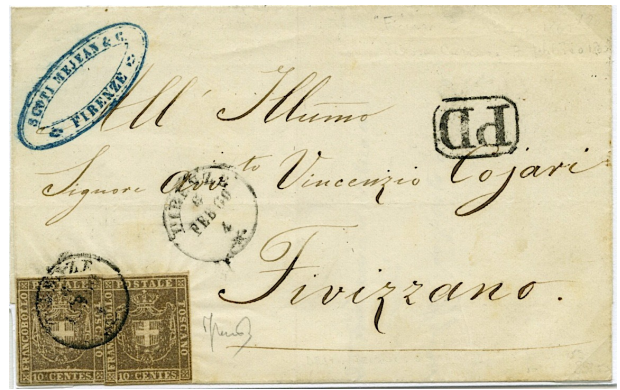 SCOTI MEJEAN & C.
FIRENZE
All' Illumo
PD
Signore Avv.to Vincenzio Cojari
FIRENZE
6
FEB 60
4
Fivizzano.
FRANCOBOLLO POSTALE TOSCANO
10 CENTES
FRANCOBOLLO POSTALE TOSCANO
10 CENTES